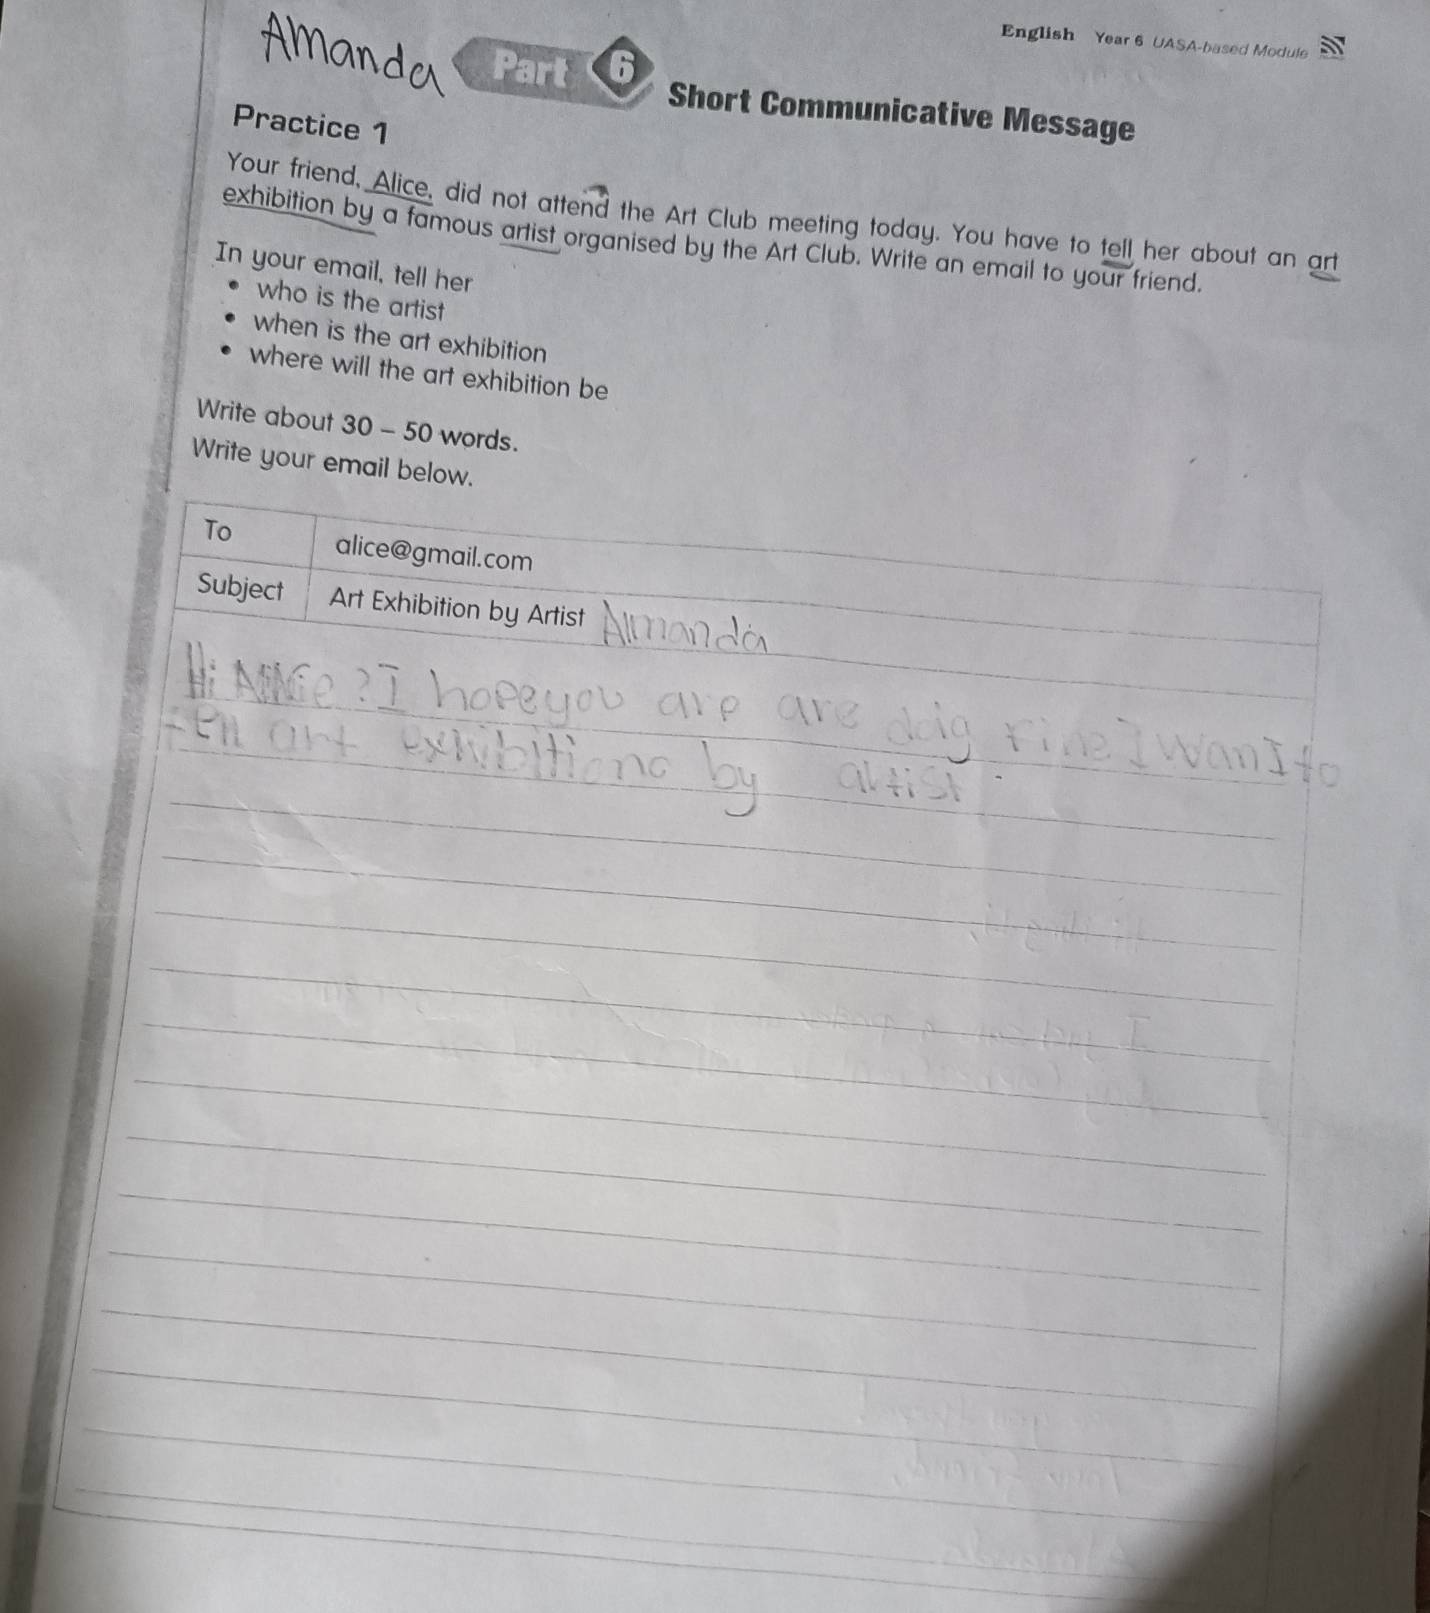 Amanda
English Year 6 UASA-based Module
Part 6 Short Communicative Message
Practice 1
Your friend, Alice, did not attend the Art Club meeting today. You have to tell her about an art
exhibition by a famous artist organised by the Art Club. Write an email to your friend.
In your email, tell her
• who is the artist
• when is the art exhibition
• where will the art exhibition be
Write about 30 – 50 words.
Write your email below.
To alice@gmail.com
Subject Art Exhibition by Artist Amanda
Hi ? I hope you are are fine I wanI to
art exhibitiono by artist.